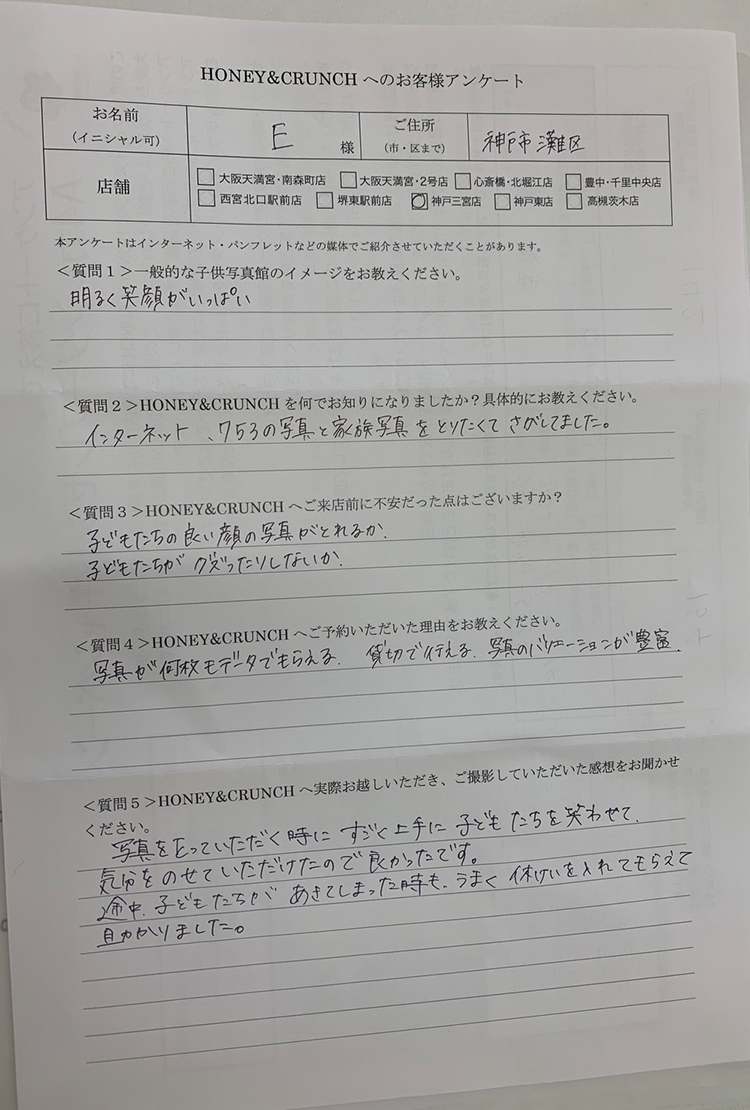 HONEY&CRUNCH へのお客様アンケート
お名前
(イニシャル可)
E
様
ご住所
(市・区まで)
神戸市灘区
店舗
大阪天満宮・南森町店 大阪天満宮・2号店 心斎橋・北堀江店 豊中・千里中央店
西宮北口駅前店 堺東駅前店 神戸三宮店 神戸東店 高槻茨木店
本アンケートはインターネット・パンフレットなどの媒体でご紹介させていただくことがあります。
＜質問１＞一般的な子供写真館のイメージをお教えください。
明るく笑顔がいっぱい
＜質問２＞HONEY&CRUNCH を何でお知りになりましたか？具体的にお教えください。
インターネット、753の写真と家族写真をとりたくてさがしてました。
＜質問３＞HONEY&CRUNCH へご来店前に不安だった点はございますか？
子どもたちの良い顔の写真がとれるか、
子どもたちがグズったりしないか、
＜質問４＞HONEY&CRUNCH へご予約いただいた理由をお教えください。
写真が何枚もデータでもらえる、貸切で行える、写真のバリエーションが豊富、
＜質問５＞HONEY&CRUNCH へ実際お越しいただき、ご撮影していただいた感想をお聞かせ
ください。
写真をとっていただく時にすごく上手に子どもたちを笑わせて、
気分をのせていただけたので良かったです。
途中、子どもたちがあきてしまった時も、うまく休けいを入れてもらえて
助かりました。